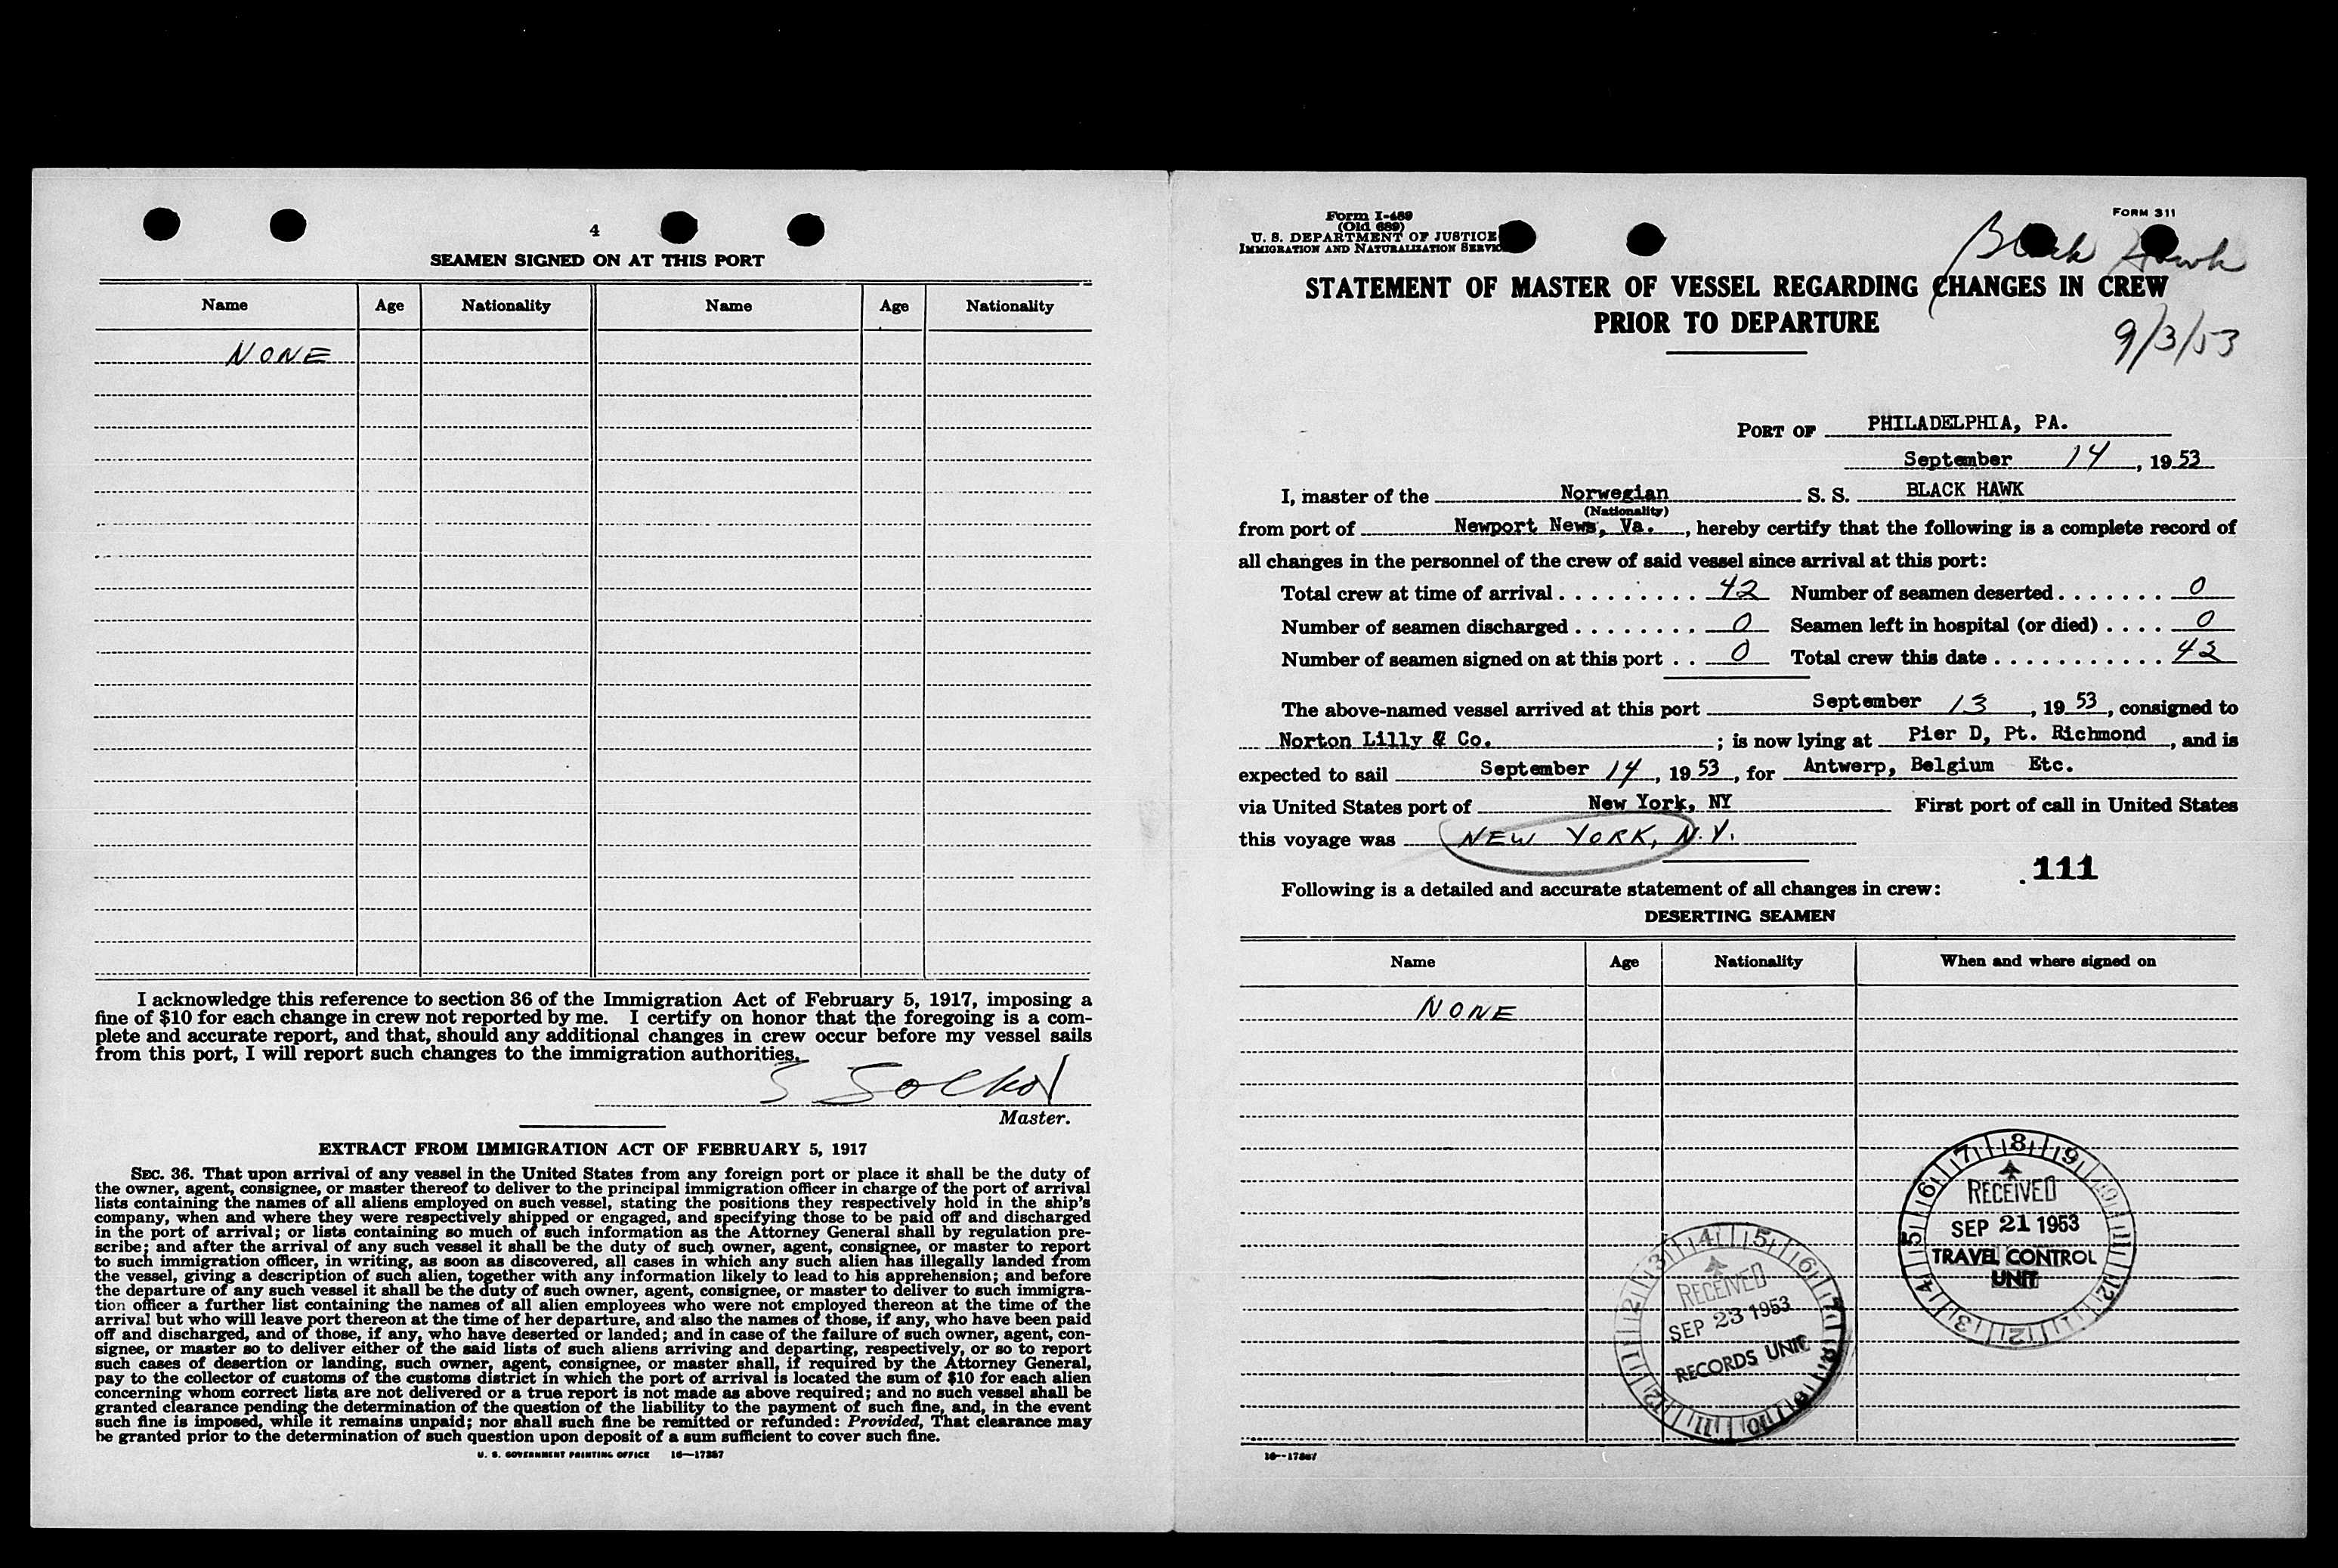 4
SEAMEN SIGNED ON AT THIS PORT
Name Age Nationality Name Age Nationality
NONE
I acknowledge this reference to section 36 of the Immigration Act of February 5, 1917, imposing a
fine of $10 for each change in crew not reported by me. I certify on honor that the foregoing is a com-
plete and accurate report, and that, should any additional changes in crew occur before my vessel sails
from this port, I will report such changes to the immigration authorities.
Master.
EXTRACT FROM IMMIGRATION ACT OF FEBRUARY 5, 1917
SEC. 36. That upon arrival of any vessel in the United States from any foreign port or place it shall be the duty of
the owner, agent, consignee, or master thereof to deliver to the principal immigration officer in charge of the port of arrival
lists containing the names of all aliens employed on such vessel, stating the positions they respectively hold in the ship's
company, when and where they were respectively shipped or engaged, and specifying those to be paid off and discharged
in the port of arrival; or lists containing so much of such information as the Attorney General shall by regulation pre-
scribe; and after the arrival of any such vessel it shall be the duty of such owner, agent, consignee, or master to report
to such immigration officer, in writing, as soon as discovered, all cases in which any such alien has illegally landed from
the vessel, giving a description of such alien, together with any information likely to lead to his apprehension; and before
the departure of any such vessel it shall be the duty of such owner, agent, consignee, or master to deliver to such immigra-
tion officer a further list containing the names of all alien employees who were not employed thereon at the time of the
arrival but who will leave port thereon at the time of her departure, and also the names of those, if any, who have been paid
off and discharged, and of those, if any, who have deserted or landed; and in case of the failure of such owner, agent, con-
signee, or master so to deliver either of the said lists of such aliens arriving and departing, respectively, or so to report
such cases of desertion or landing, such owner, agent, consignee, or master shall, if required by the Attorney General,
pay to the collector of customs of the customs district in which the port of arrival is located the sum of $10 for each alien
concerning whom correct lists are not delivered or a true report is not made as above required; and no such vessel shall be
granted clearance pending the determination of the question of the liability to the payment of such fine, and, in the event
such fine is imposed, while it remains unpaid; nor shall such fine be remitted or refunded: Provided, That clearance may
be granted prior to the determination of such question upon deposit of a sum sufficient to cover such fine.
U. S. GOVERNMENT PRINTING OFFICE 16—17287
Form I-489
(Old 689)
U. S. DEPARTMENT OF JUSTICE
IMMIGRATION AND NATURALIZATION SERVICE
FORM 311
Black Hawk
STATEMENT OF MASTER OF VESSEL REGARDING CHANGES IN CREW
PRIOR TO DEPARTURE
9/3/53
PORT OF PHILADELPHIA, PA.
September 14, 1953
I, master of the Norwegian S. S. BLACK HAWK
(Nationality)
from port of Newport News, Va., hereby certify that the following is a complete record of
all changes in the personnel of the crew of said vessel since arrival at this port:
Total crew at time of arrival . . . . . . . . . 42 Number of seamen deserted . . . . . . . 0
Number of seamen discharged . . . . . . . . 0 Seamen left in hospital (or died) . . . . 0
Number of seamen signed on at this port . . 0 Total crew this date . . . . . . . . . . . 42
The above-named vessel arrived at this port September 13, 1953, consigned to
Norton Lilly & Co. ; is now lying at Pier D, Pt. Richmond, and is
expected to sail September 14, 1953, for Antwerp, Belgium Etc.
via United States port of New York, NY First port of call in United States
this voyage was NEW YORK, N.Y.
111
Following is a detailed and accurate statement of all changes in crew:
DESERTING SEAMEN
Name Age Nationality When and where signed on
NONE
RECEIVED
SEP 21 1953
TRAVEL CONTROL
UNIT
RECEIVED
SEP 23 1953
RECORDS UNIT